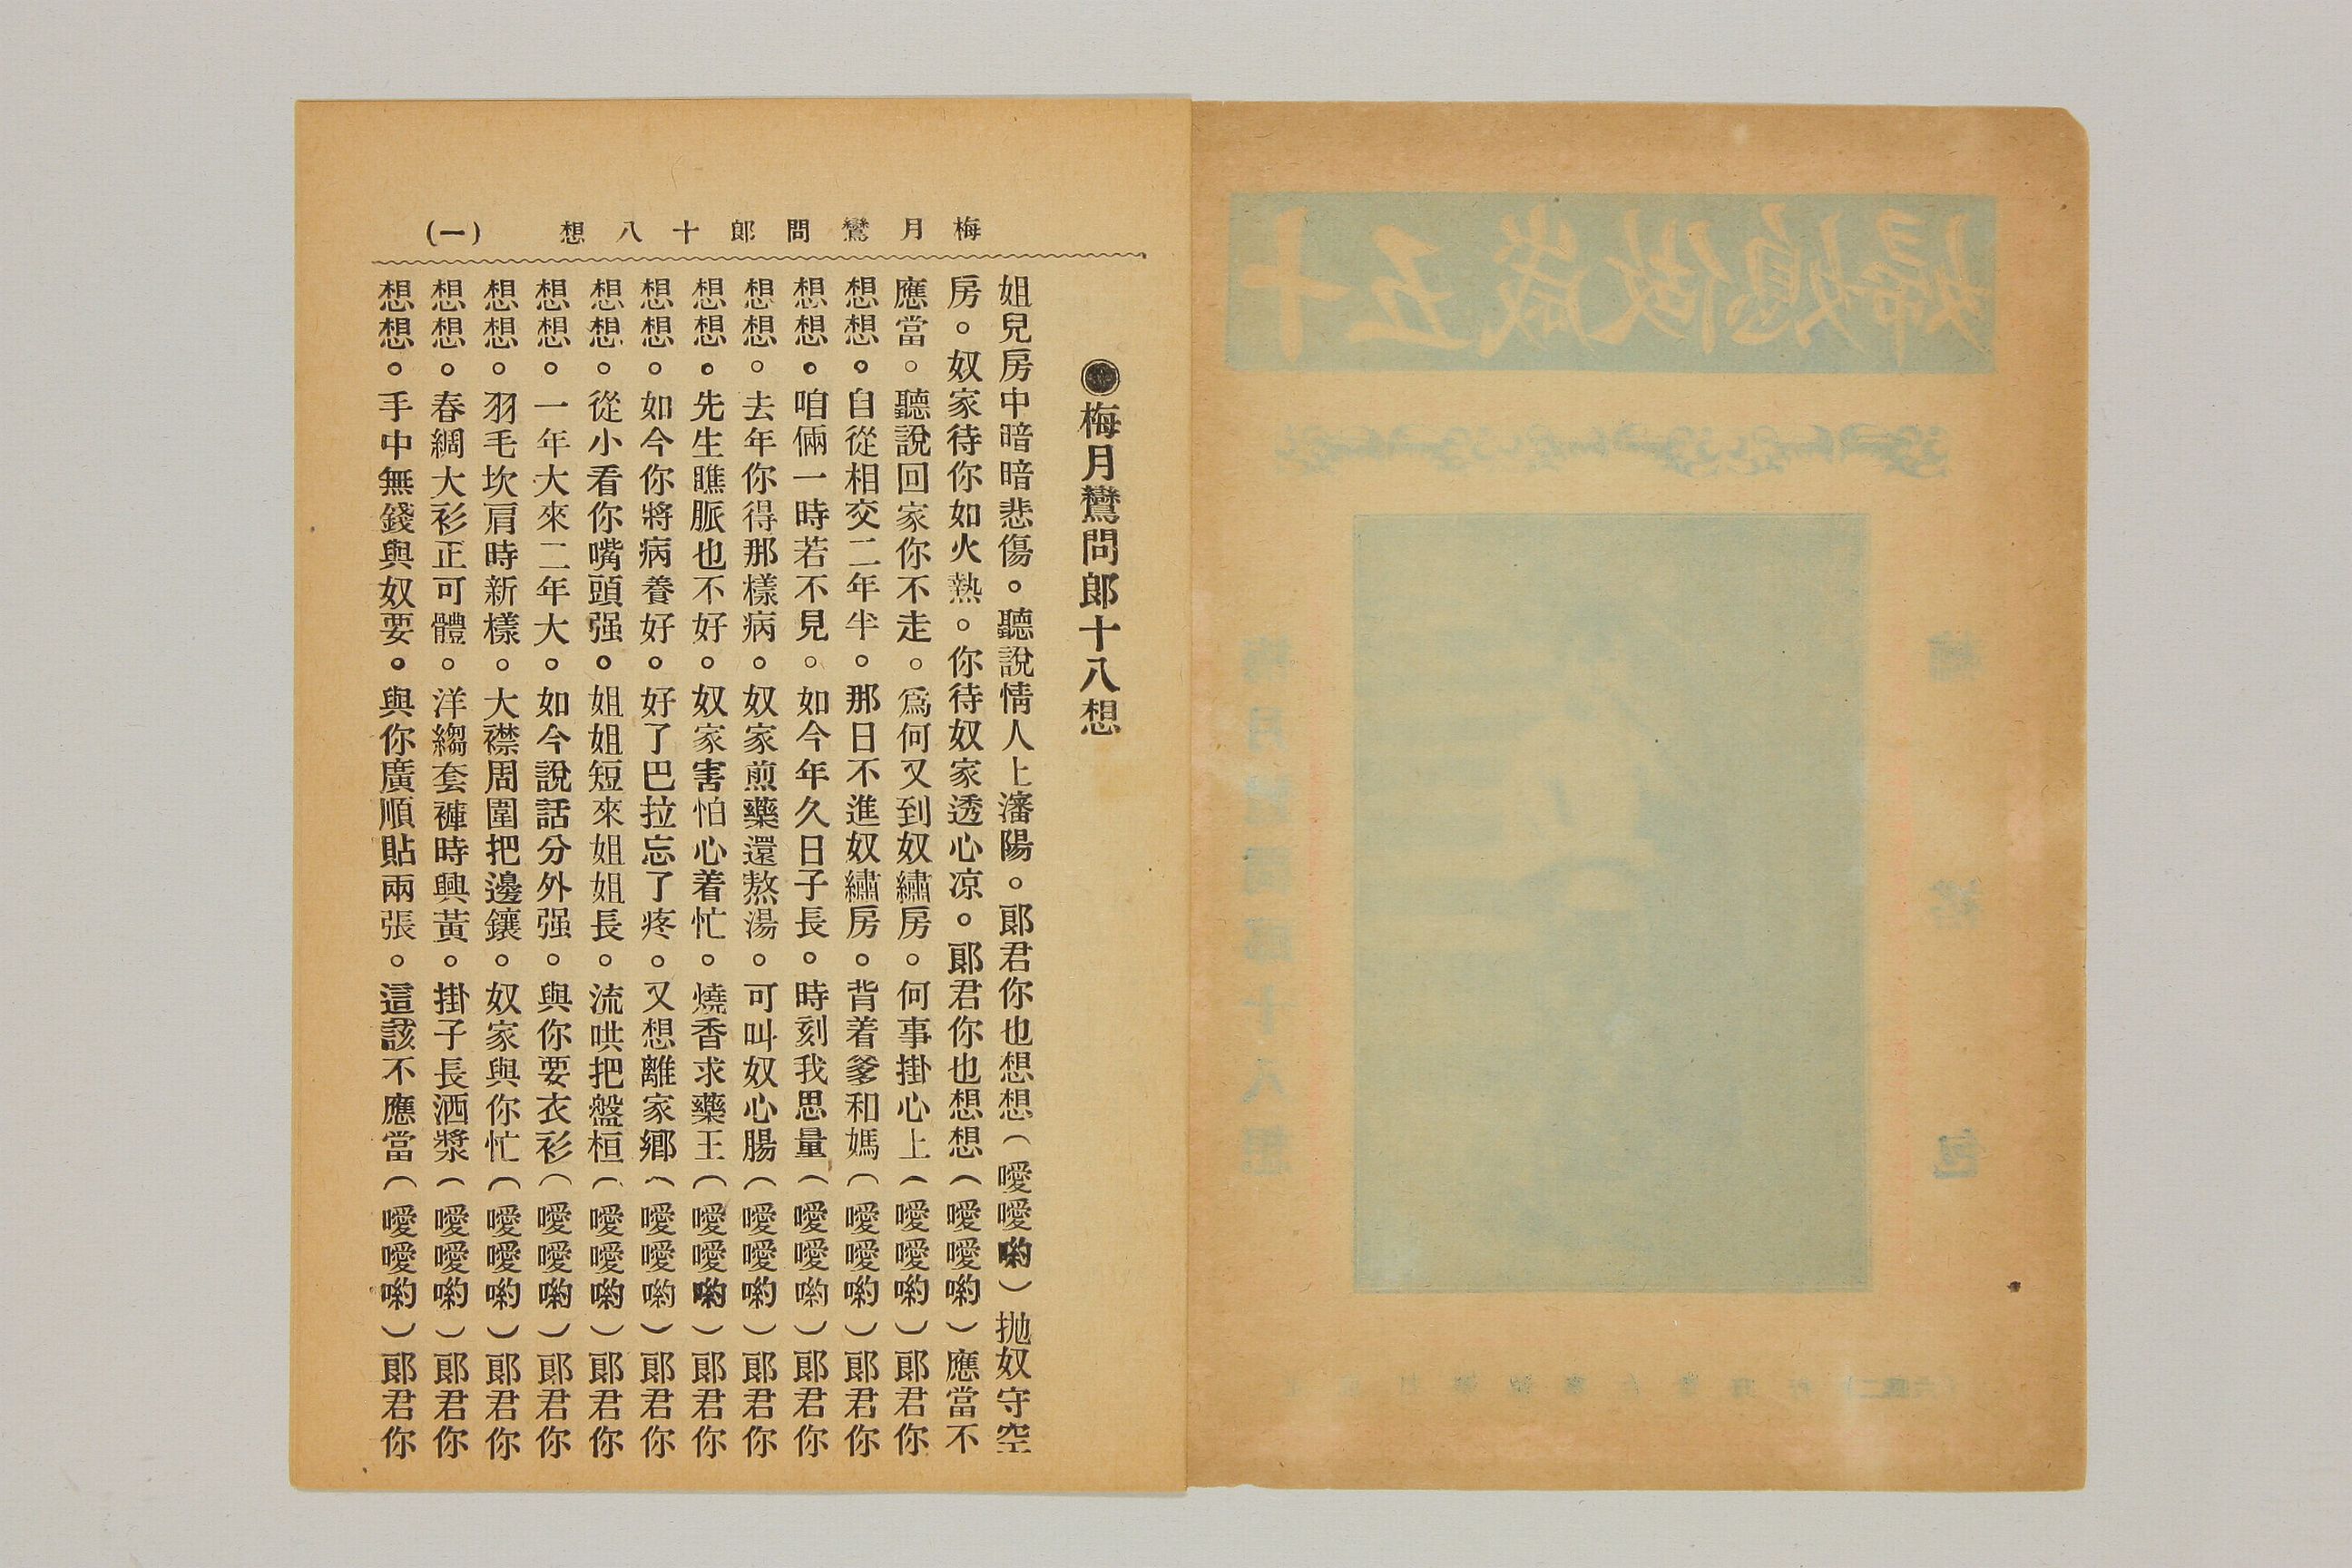 梅月鸞問郎十八想　(一)
◉梅月鸞問郎十八想
姐兒房中暗暗悲傷。聽說情人上瀋陽。郎君你也想想（噯噯喲）拋奴守空
房。奴家待你如火熱。你待奴家透心凉。郎君你也想想（噯噯喲）應當不
應當。聽說回家你不走。爲何又到奴繡房。何事掛心上（噯噯喲）郎君你
想想。自從相交二年半。那日不進奴繡房。背着爹和媽（噯噯喲）郎君你
想想。咱倆一時若不見。如今年久日子長。時刻我思量（噯噯喲）郎君你
想想。去年你得那樣病。奴家煎藥還熬湯。可叫奴心腸（噯噯喲）郎君你
想想。先生瞧脈也不好。奴家害怕心着忙。燒香求藥王（噯噯喲）郎君你
想想。如今你將病養好。好了巴拉忘了疼。又想離家鄉（噯噯喲）郎君你
想想。從小看你嘴頭强。姐姐短來姐姐長。流哄把盤桓（噯噯喲）郎君你
想想。一年大來二年大。如今說話分外强。與你要衣衫（噯噯喲）郎君你
想想。羽毛坎肩時新樣。大襟周圍把邊鑲。奴家與你忙（噯噯喲）郎君你
想想。春綢大衫正可體。洋縐套褲時興黃。掛子長洒漿（噯噯喲）郎君你
想想。手中無錢與奴要。與你廣順貼兩張。這該不應當（噯噯喲）郎君你
十五歲做媳婦
梅月鸞問郎十八想